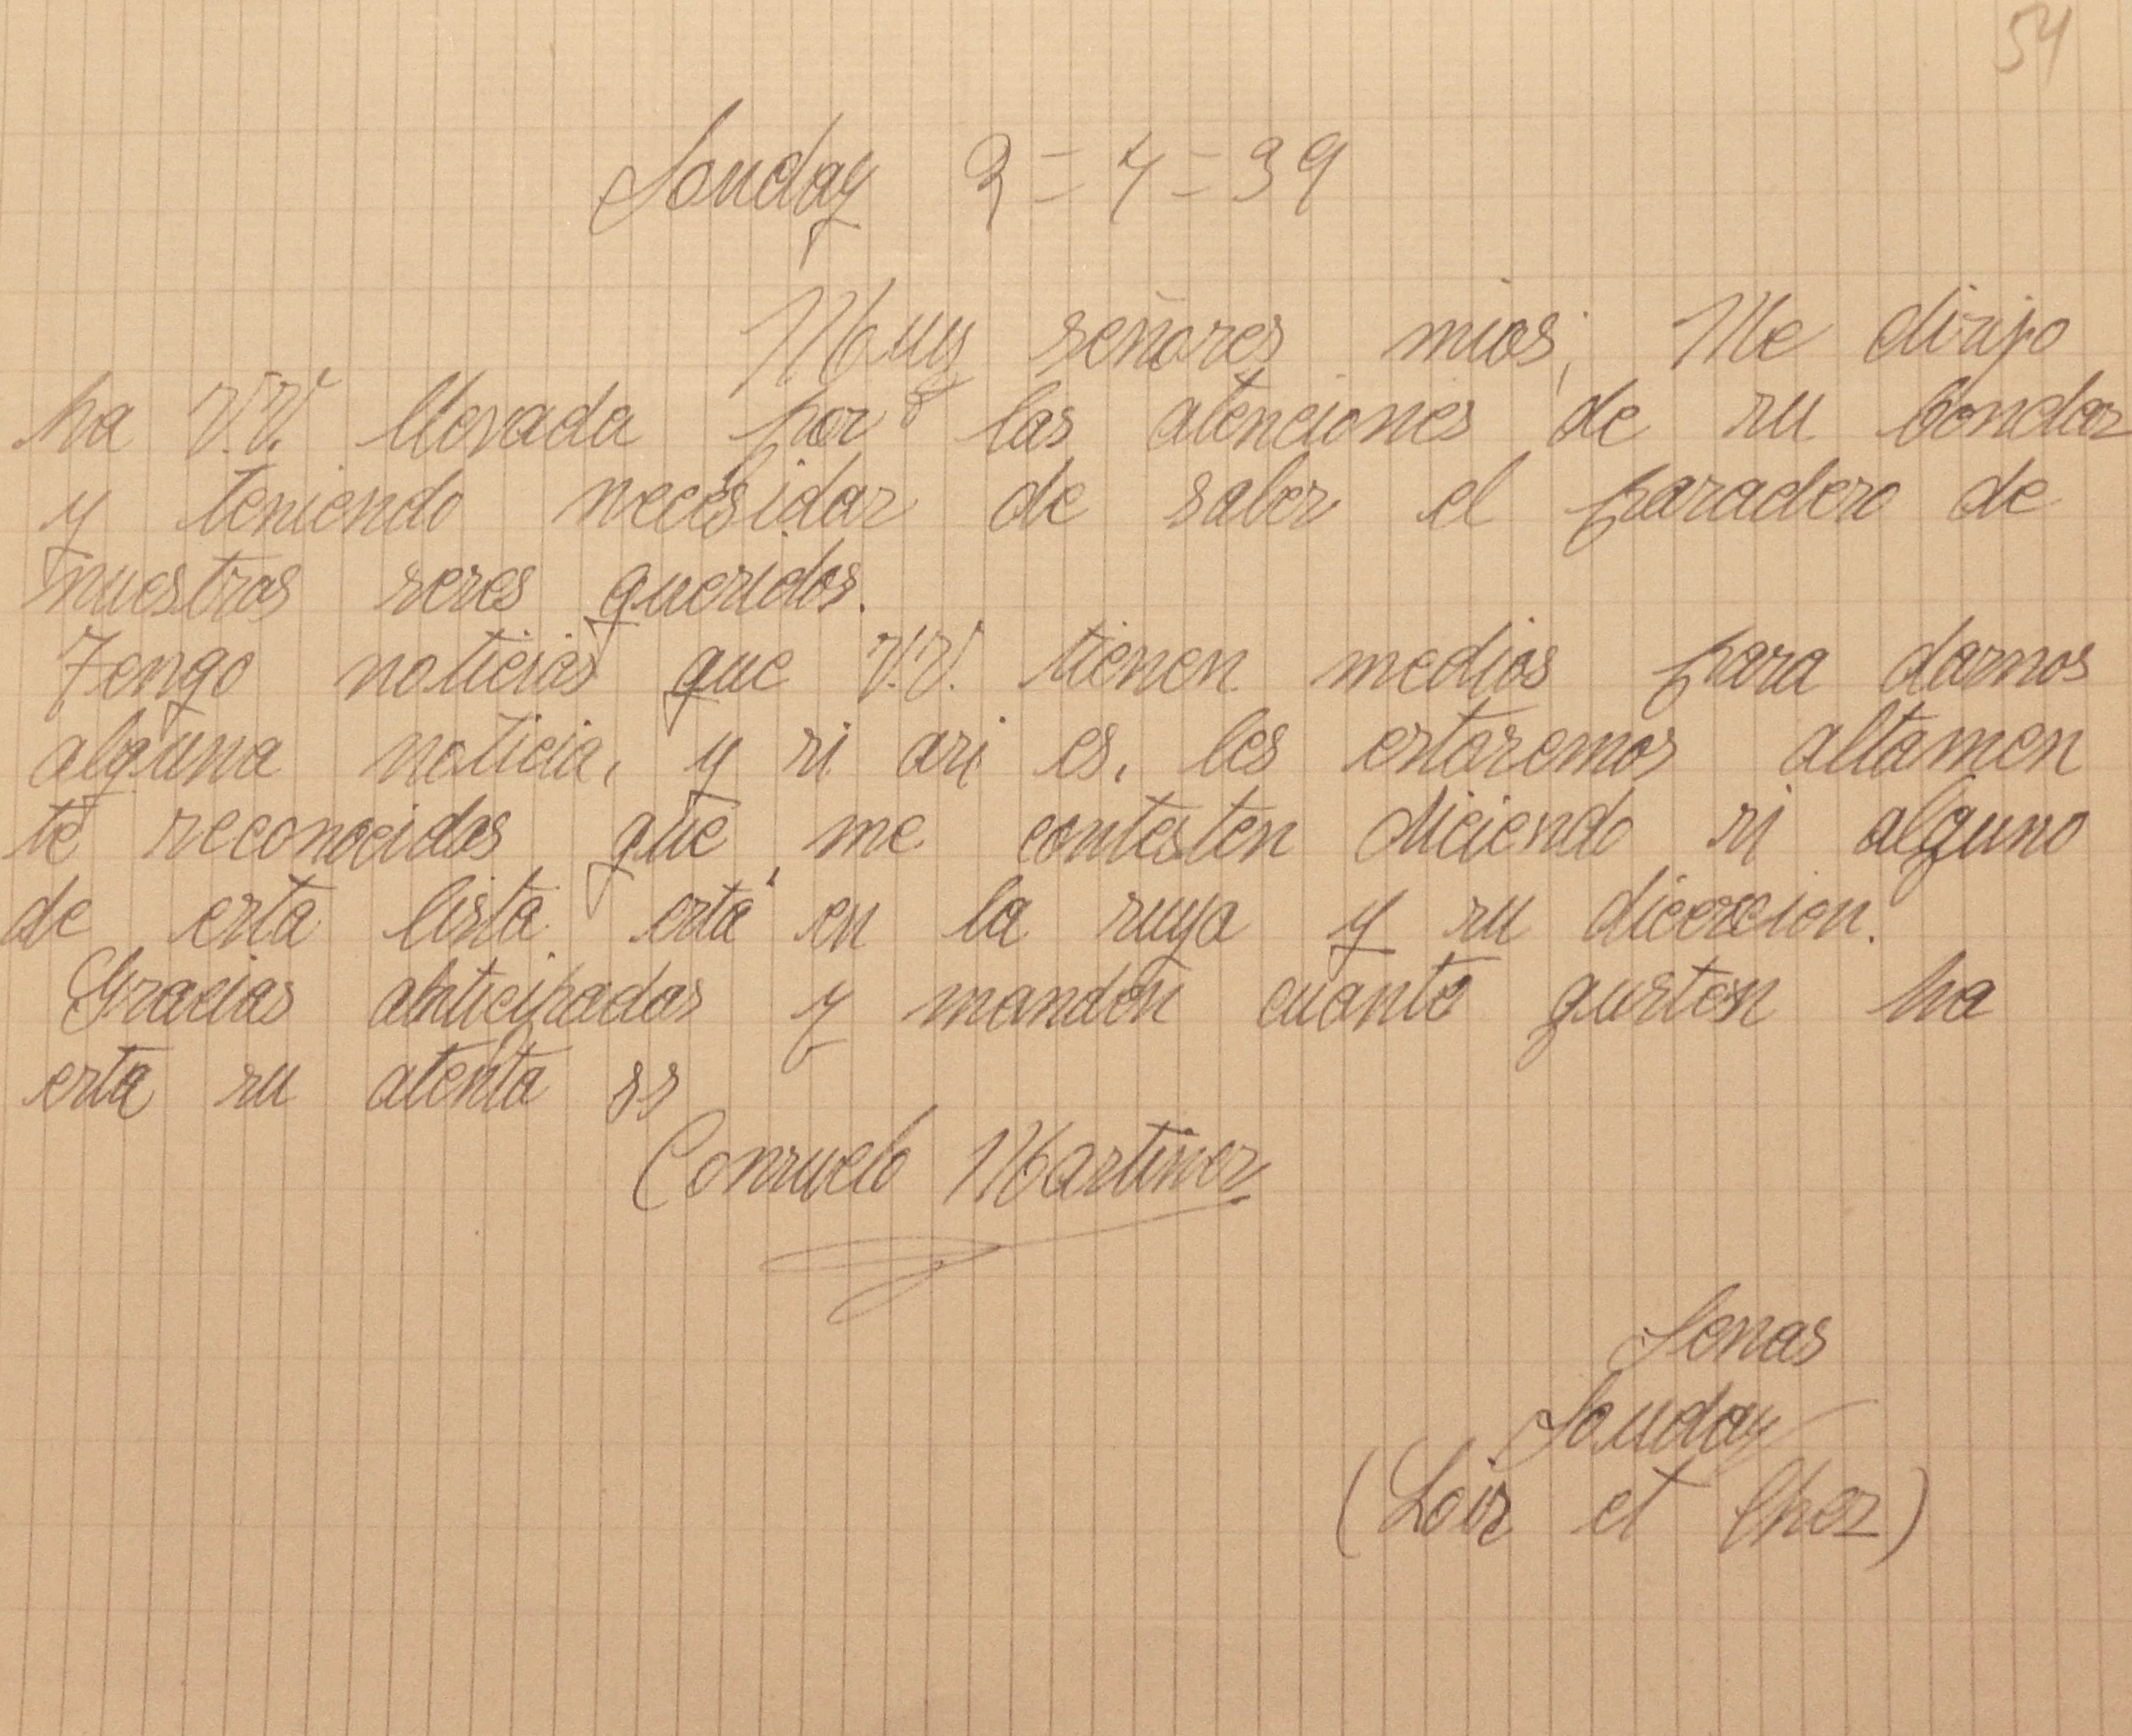 54
Souday 2=4=39
Muy señores mios; Me dirijo
ha V.V. llevada por las atenciones de su bondaz
y teniendo necesidaz de saber el paradero de
nuestros seres queridos.
Tengo noticias que V.V. tienen medios para darnos
alguna noticia, y si asi es, les estaremos altamen
te reconocidos que me contesten diciendo si alguno
de esta lista está en la suya y su dicercion.
Gracias anticipadas y manden cuanto gusten ha
esta su atenta ss
Consuelo Martinez
Senas
Souday
(Loir et Cher)